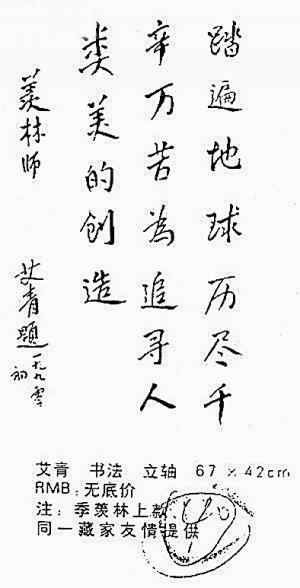 踏遍地球历尽千
辛万苦为追寻人
类美的创造
羡林师
艾青题一九九零
初
艾青 书法 立轴 67×42cm
RMB:无底价
注:季羡林上款、
同一藏家友情提供